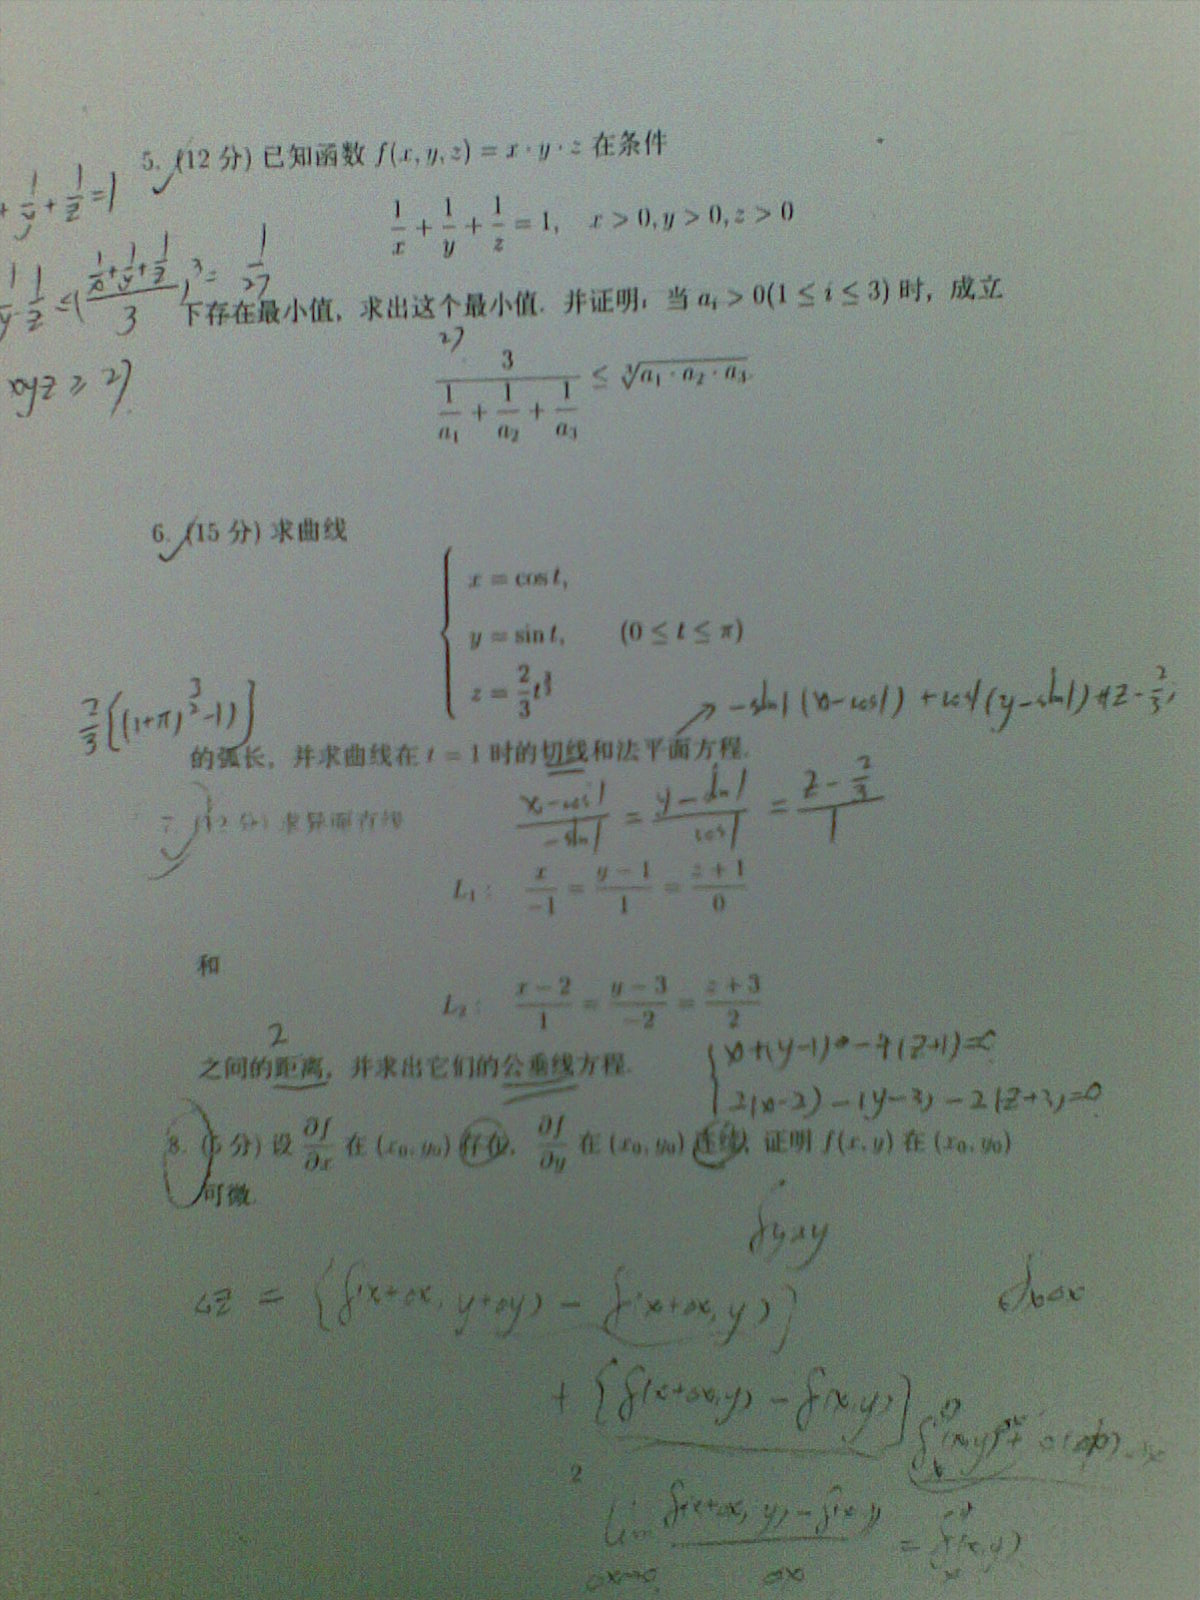 5. (12 分) 已知函数 f(x, y, z) = x · y · z 在条件
+ 1/y + 1/z = 1
1/x + 1/y + 1/z = 1, x > 0, y > 0, z > 0
1/y 1/z ≤ ( (1/x + 1/y + 1/z) / 3 )³ = 1/27
下存在最小值, 求出这个最小值. 并证明: 当 aᵢ > 0(1 ≤ i ≤ 3) 时, 成立
27
xyz ≥ 27
3 / (1/a₁ + 1/a₂ + 1/a₃) ≤ ∛(a₁ · a₂ · a₃)
6. (15 分) 求曲线
x = cos t,
y = sin t, (0 ≤ t ≤ π)
z = 2/3 t^(3/2)
2/3 [(1+π)^(3/2) - 1)]
-sin1 (x - cos1) + cos1 (y - sin1) + z - 2/3
的弧长, 并求曲线在 t = 1 时的切线和法平面方程.
(x - cos1)/(-sin1) = (y - sin1)/cos1 = (z - 2/3)/1
7. (12 分) 求异面直线
L₁ : x/(-1) = (y - 1)/1 = (z + 1)/0
和
L₂ : (x - 2)/1 = (y - 3)/(-2) = (z + 3)/2
2
之间的距离, 并求出它们的公垂线方程.
2(x-2) - (y-3) - 2(z+3) = 0
8. (5 分) 设 ∂f/∂x 在 (x₀, y₀) 存在, ∂f/∂y 在 (x₀, y₀) 连续, 证明 f(x, y) 在 (x₀, y₀)
可微.
△z = [f(x+△x, y+△y) - f(x+△x, y)]
+ [f(x+△x, y) - f(x, y)]
2